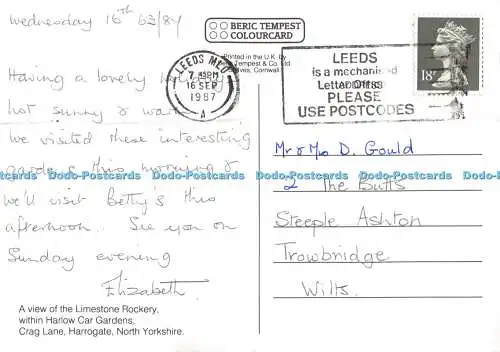 Wednesday 16th 63/84
BERIC TEMPEST
COLOURCARD
Printed in the U.K. by
Tempest & Co. Ltd
Ives, Cornwall
LEEDS
7 PM
16 SEP
1987
A
LEEDS
is a mechanised
Letter Office
PLEASE
USE POSTCODES
18P
Having a lovely
hot sunny &
we visited these interesting
gardens this morning &
we'll visit Betty's this
afternoon. See you on
Sunday evening
Elizabeth.
Mr & Mrs D. Gould
2 The Butts
Steeple Ashton
Trowbridge
Wilts.
Dodo-Postcards Dodo-Postcards Dodo-Postcards Dodo-Postcards Dodo-Postcards
A view of the Limestone Rockery,
within Harlow Car Gardens,
Crag Lane, Harrogate, North Yorkshire.